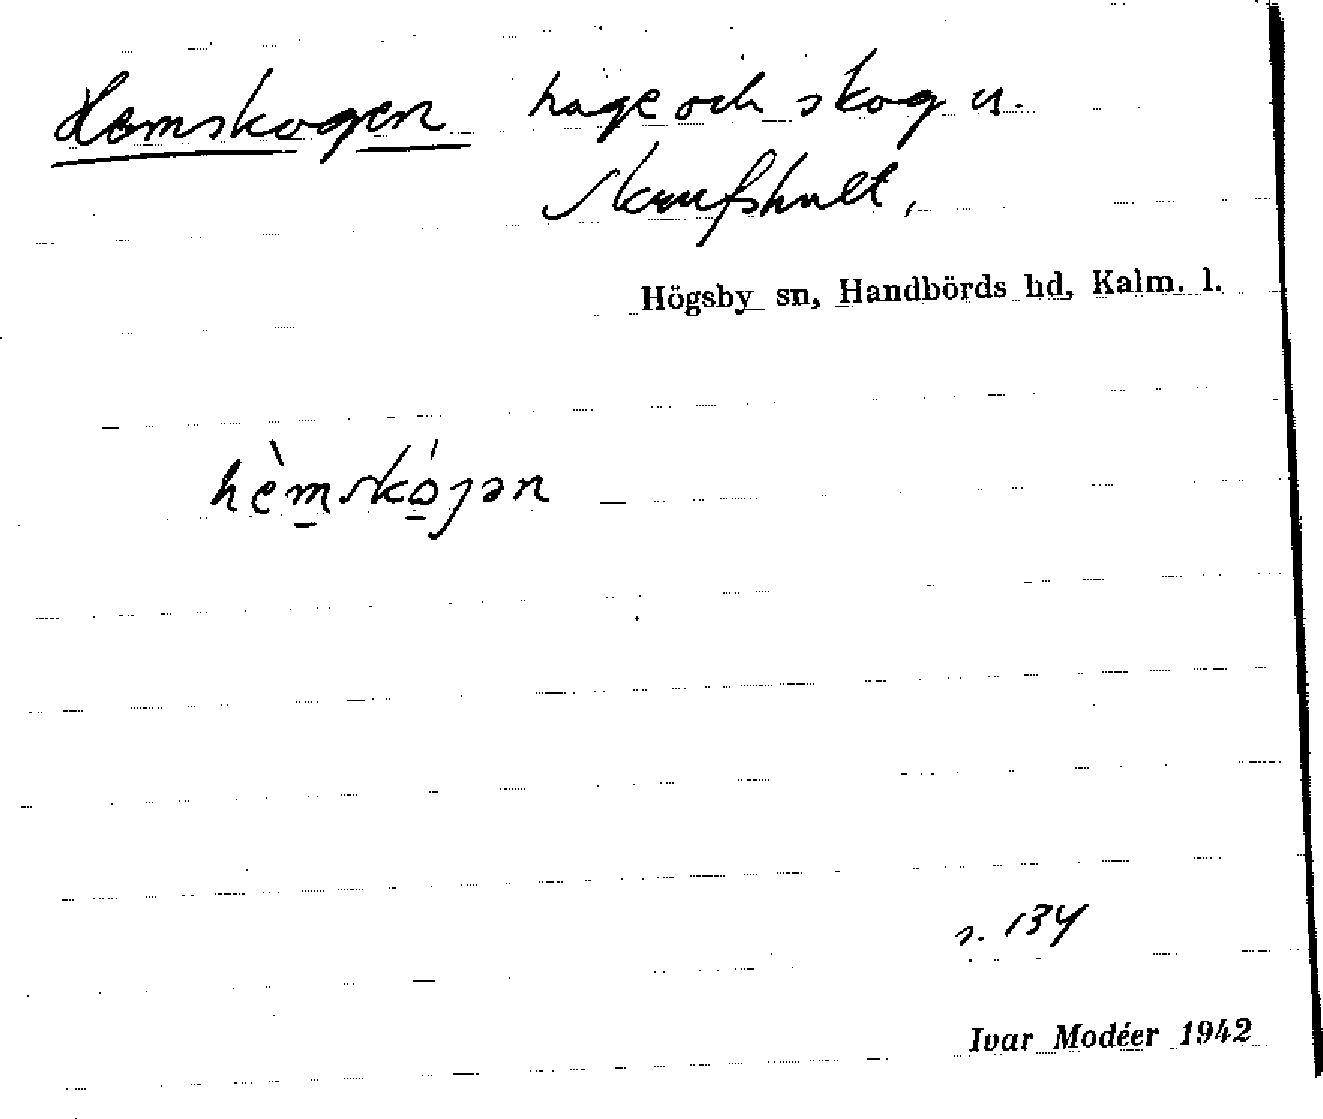 Hemskogen hage och skog u.
Skrufshult,
Högsby sn, Handbörds hd, Kalm. l.
hèmskójən
s. 134
Ivar Modéer 1942